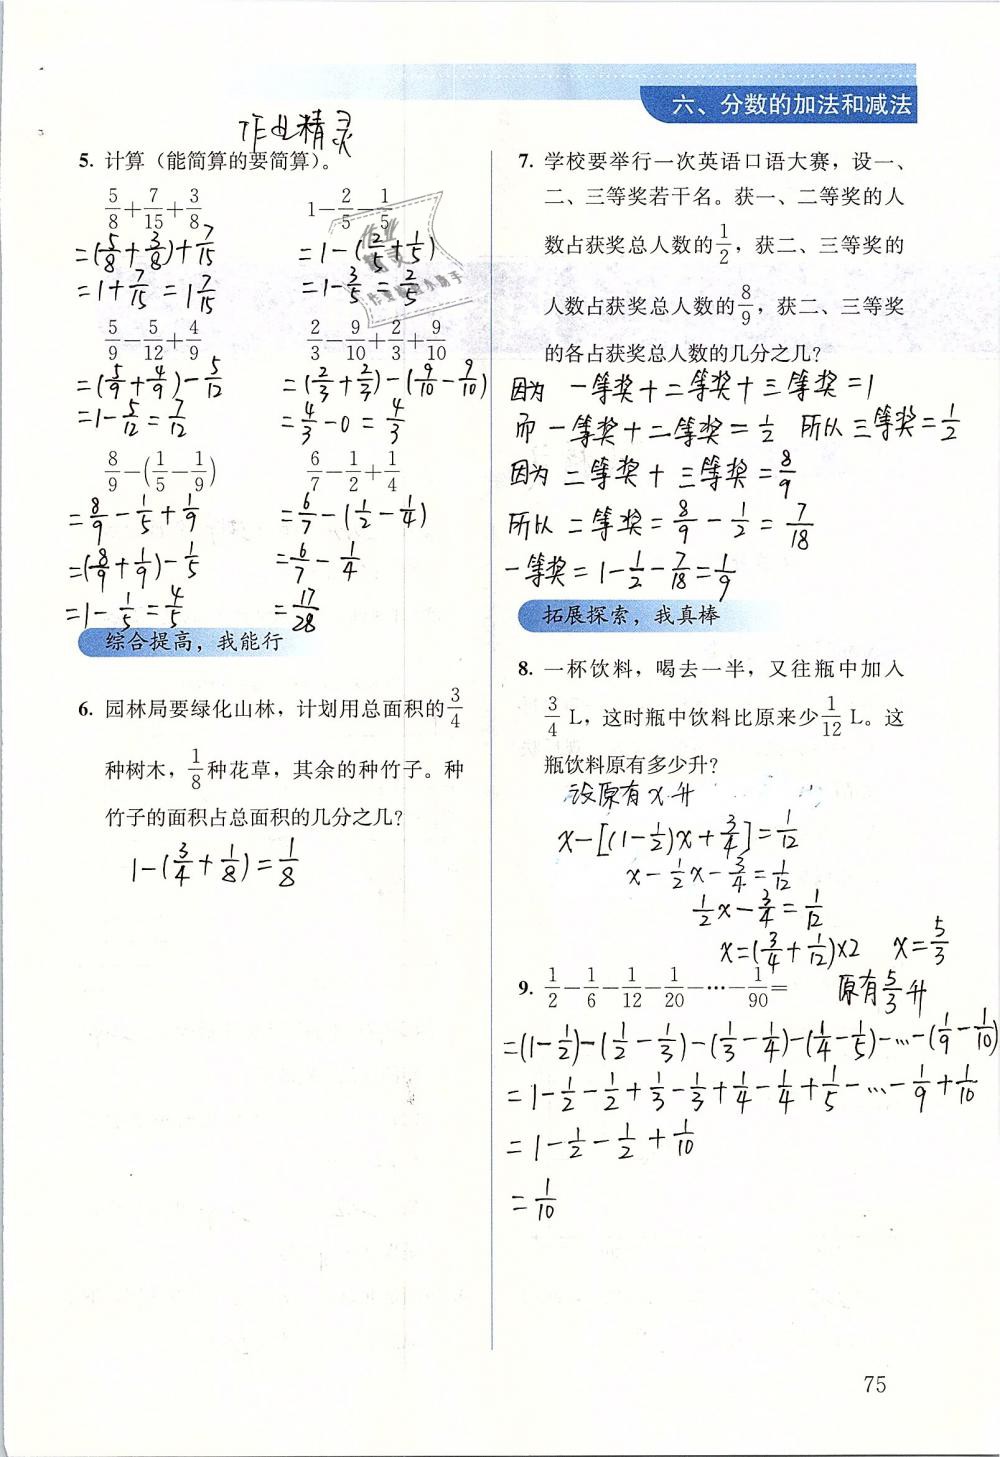 六、分数的加法和减法
作业精灵
5. 计算（能简算的要简算）。
5/8+7/15+3/8
=(5/8+3/8)+7/15
=1+7/15=1 7/15
1-2/5-1/5
=1-(2/5+1/5)
=1-3/5=2/5
5/9-5/12+4/9
=(5/9+4/9)-5/12
=1-5/12=7/12
2/3-9/10+2/3+9/10
=(2/3+2/3)-(9/10-9/10)
=4/3-0=4/3
8/9-(1/5-1/9)
=8/9-1/5+1/9
=(8/9+1/9)-1/5
=1-1/5=4/5
6/7-1/2+1/4
=6/7-(1/2-1/4)
=6/7-1/4
=17/28
综合提高，我能行
6. 园林局要绿化山林，计划用总面积的3/4
种树木，1/8种花草，其余的种竹子。种
竹子的面积占总面积的几分之几?
1-(3/4+1/8)=1/8
7. 学校要举行一次英语口语大赛，设一、
二、三等奖若干名。获一、二等奖的人
数占获奖总人数的1/2，获二、三等奖的
人数占获奖总人数的8/9，获二、三等奖
的各占获奖总人数的几分之几?
因为 一等奖+二等奖+三等奖=1
而 一等奖+二等奖=1/2 所以三等奖=1/2
因为 二等奖+三等奖=8/9
所以 二等奖=8/9-1/2=7/18
一等奖=1-1/2-7/18=1/9
拓展探索，我真棒
8. 一杯饮料，喝去一半，又往瓶中加入
3/4 L，这时瓶中饮料比原来少1/12 L。这
瓶饮料原有多少升?
设原有x升
x-[(1-1/2)x+3/4]=1/12
x-1/2x-3/4=1/12
1/2x-3/4=1/12
x=(3/4+1/12)×2 x=5/3
原有5/3升
9. 1/2-1/6-1/12-1/20-…-1/90=
=(1-1/2)-(1/2-1/3)-(1/3-1/4)-(1/4-1/5)-…-(1/9-1/10)
=1-1/2-1/2+1/3-1/3+1/4-1/4+1/5-…-1/9+1/10
=1-1/2-1/2+1/10
=1/10
75